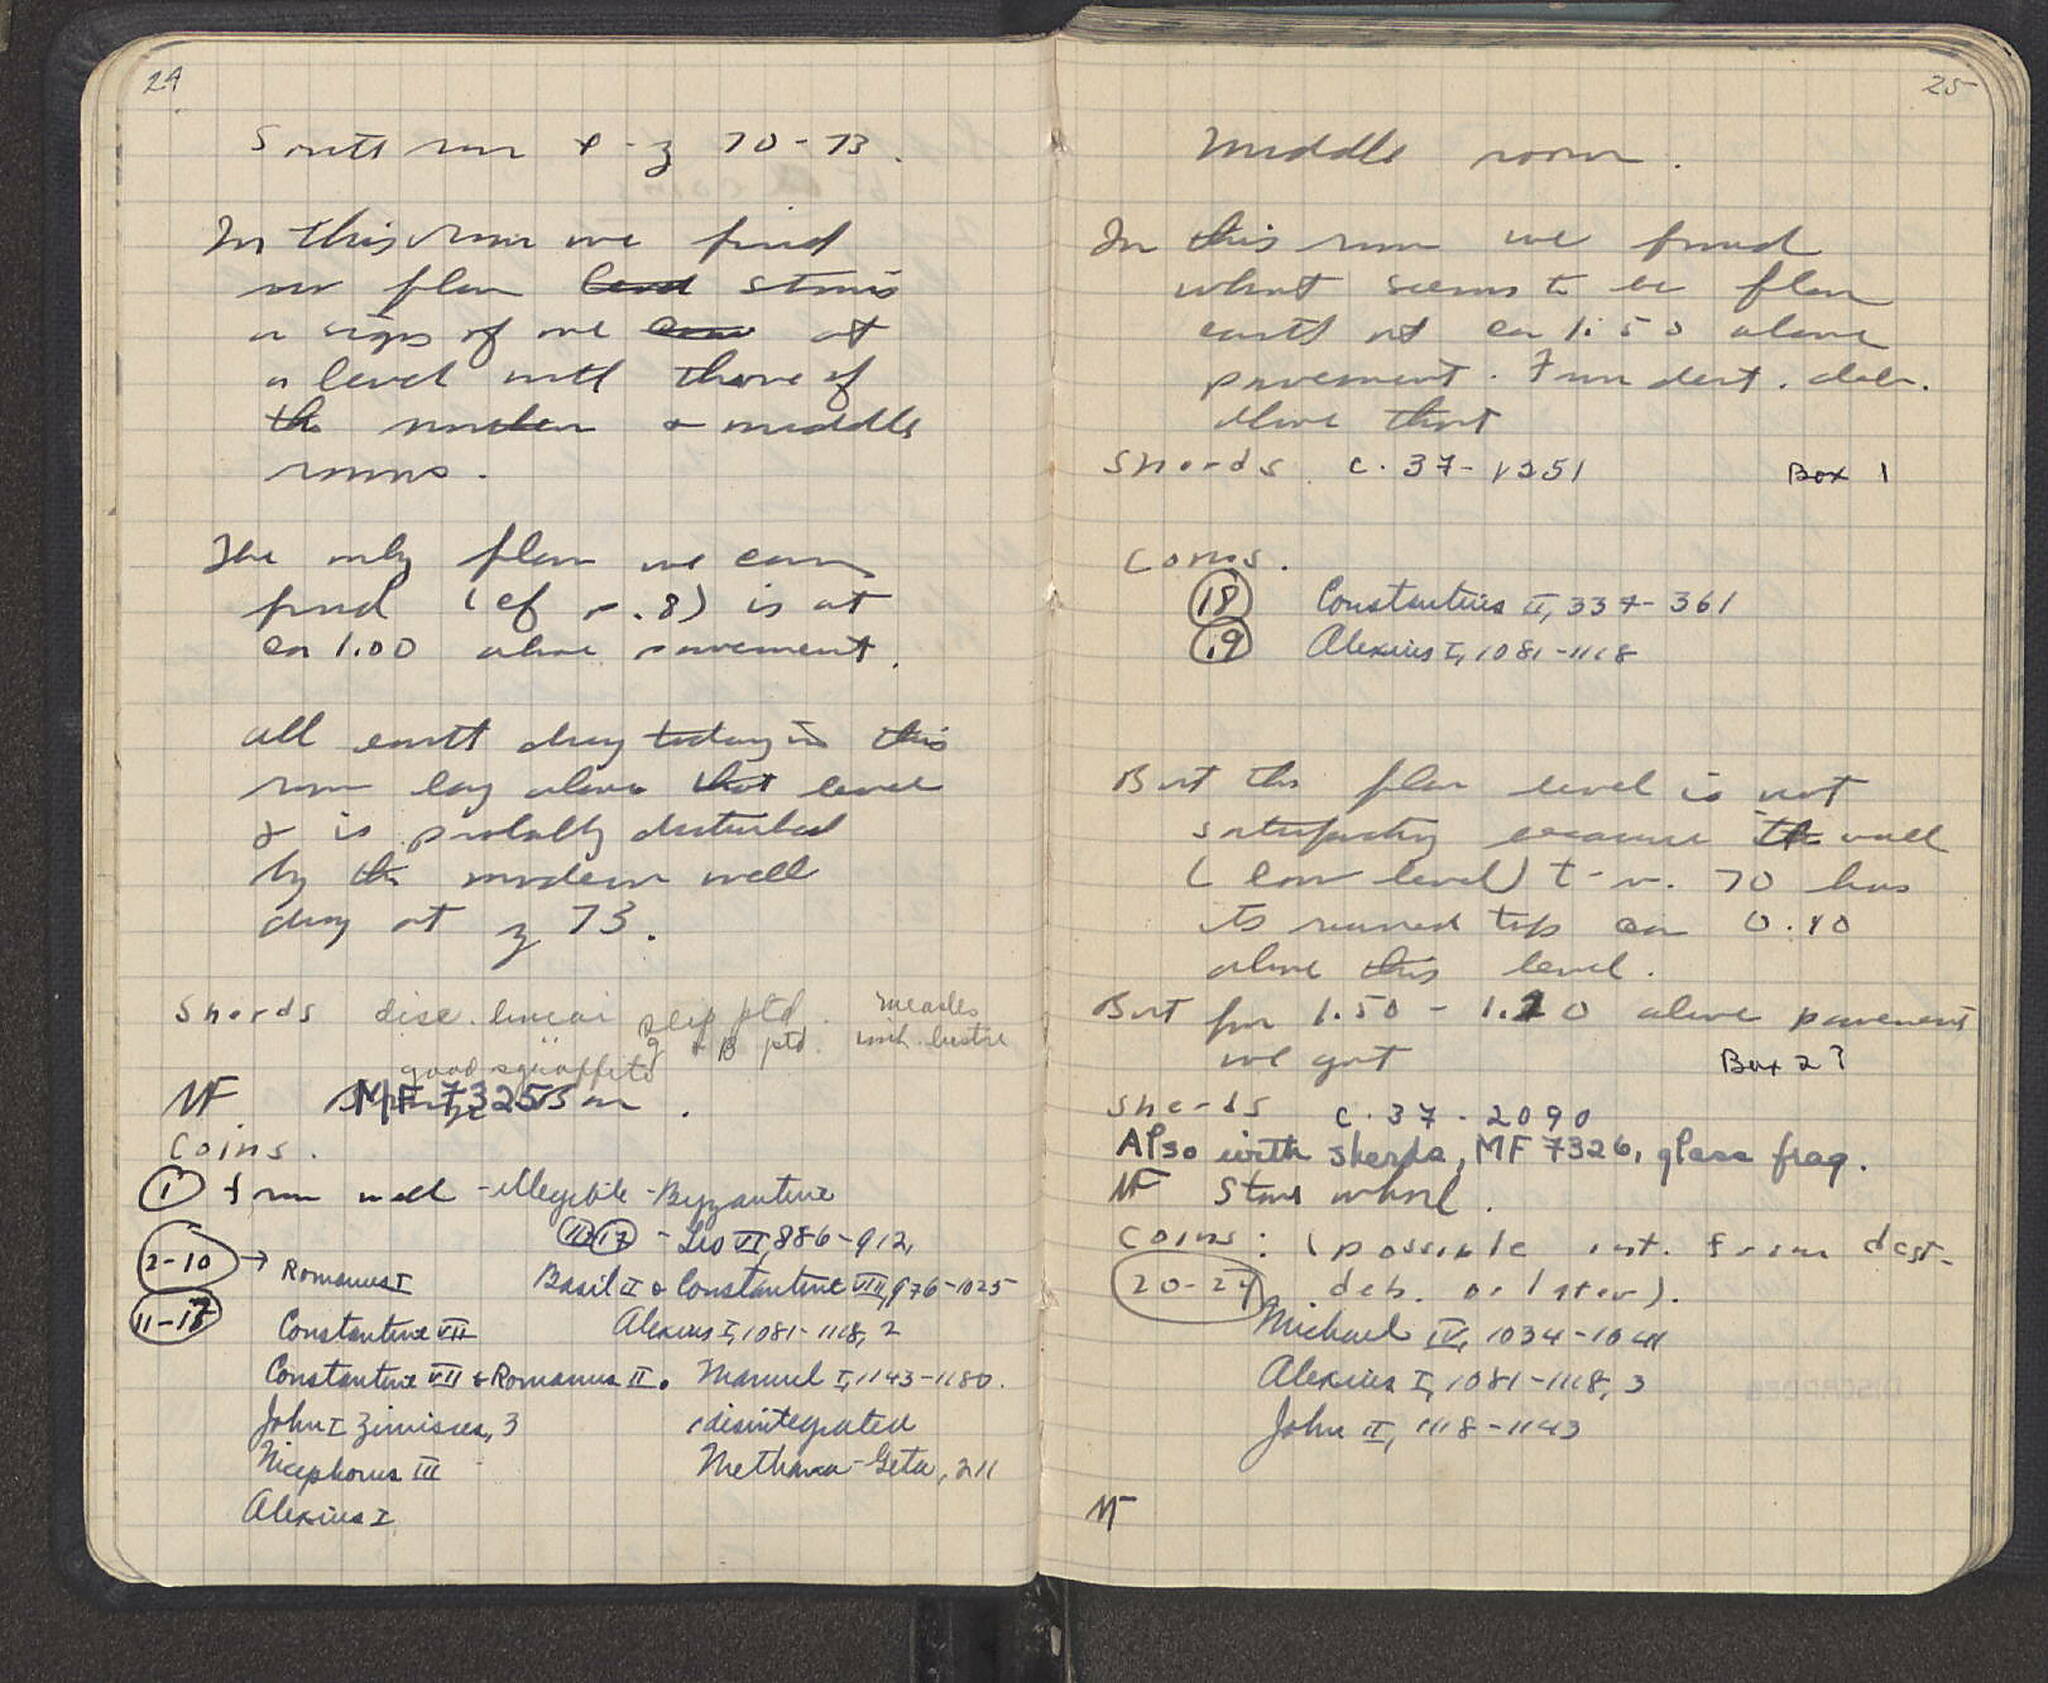 24
South room x - z 70 - 73.
In this room we find
no floor level stones
or signs of one at
a level with those of
the northern & middle
rooms.
The only floor we can
find (cf p. 8) is at
ca 1.00 above pavement.
All earth dug today in this
room lay above that level
& is probably disturbed
by the modern well
dug at z 73.
Sherds disc. linear slip ptd. measles
g & B ptd. imit. lustre
good sgraffito
MF MF 7325
Coins.
① from well - illegible - Byzantine
11-17 - Leo VI, 886-912,
2-10 → Romanus I Basil II & Constantine VIII, 976-1025
11-17
Constantine VII Alexius I, 1081-1118, 2
Constantine VII & Romanus II. Manuel I, 1143-1180.
John I Zimisces, 3 1 disintegrated
Nicephorus III Methana - Geta, 211
Alexius I
25
Middle room.
In this room we found
what seems to be floor
earth at ca 1.50 above
pavement. From dest. deb.
above that
Sherds c. 37 - 1251 Box 1
Coins.
18 Constantius II, 337-361
19 Alexius I, 1081-1118
But this floor level is not
satisfactory because the wall
(low level) t - v. 70 has
its ruined top ca 0.40
above this level.
But for 1.50 - 1.20 above pavement
we got Box 2?
Sherds c. 37 - 2090
Also with sherds, MF 7326, glass frag.
MF Stone whorl.
Coins: (possible int. from dest.
20-24 deb. or later).
Michael IV, 1034-1041
Alexius I, 1081-1118, 3
John II, 1118-1143
MF